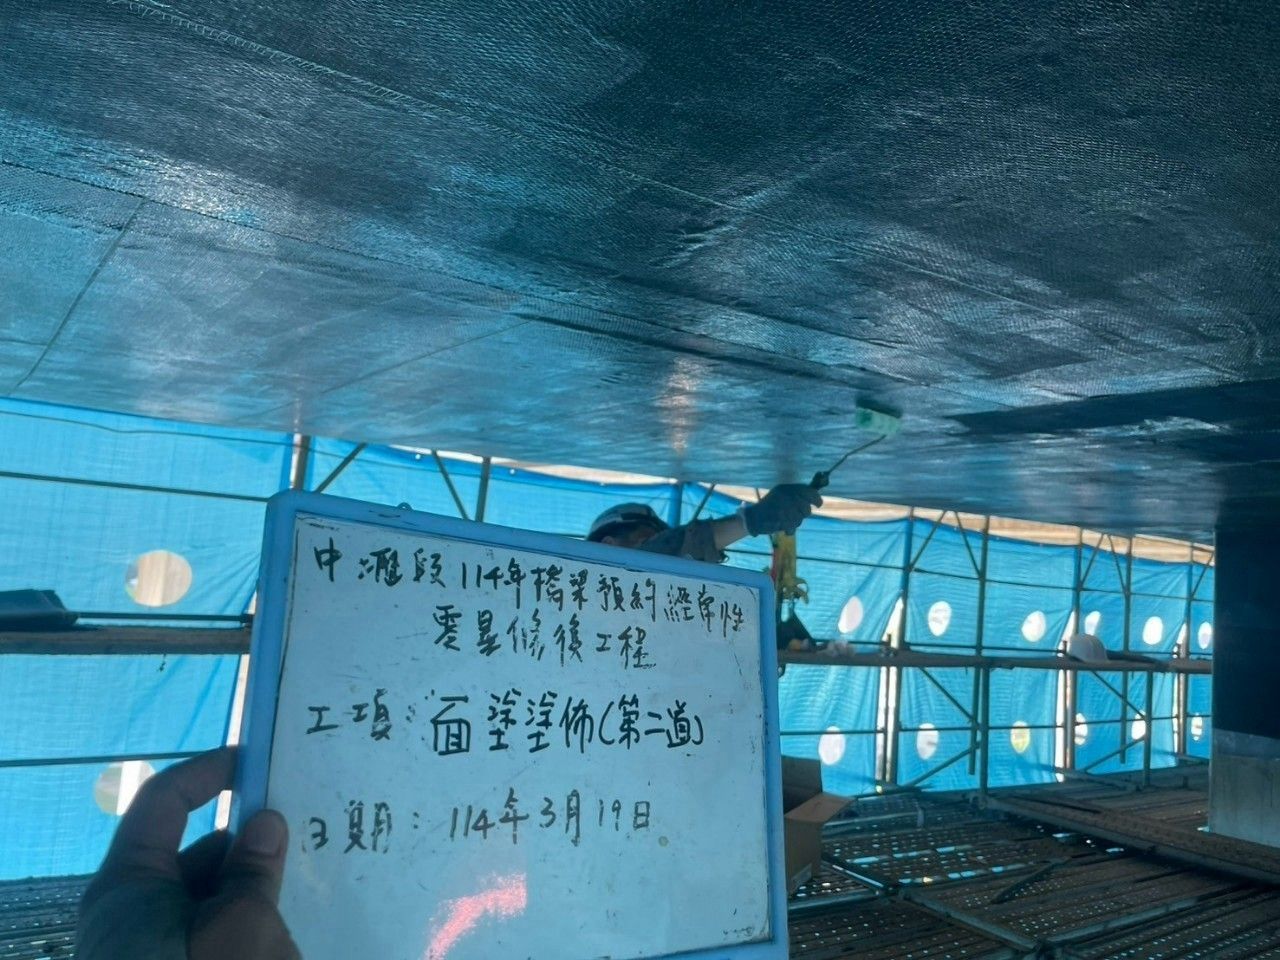 中壢段114年橋梁預約經常性
零星修復工程
工項：面塗塗佈(第二道)
日期：114年3月19日